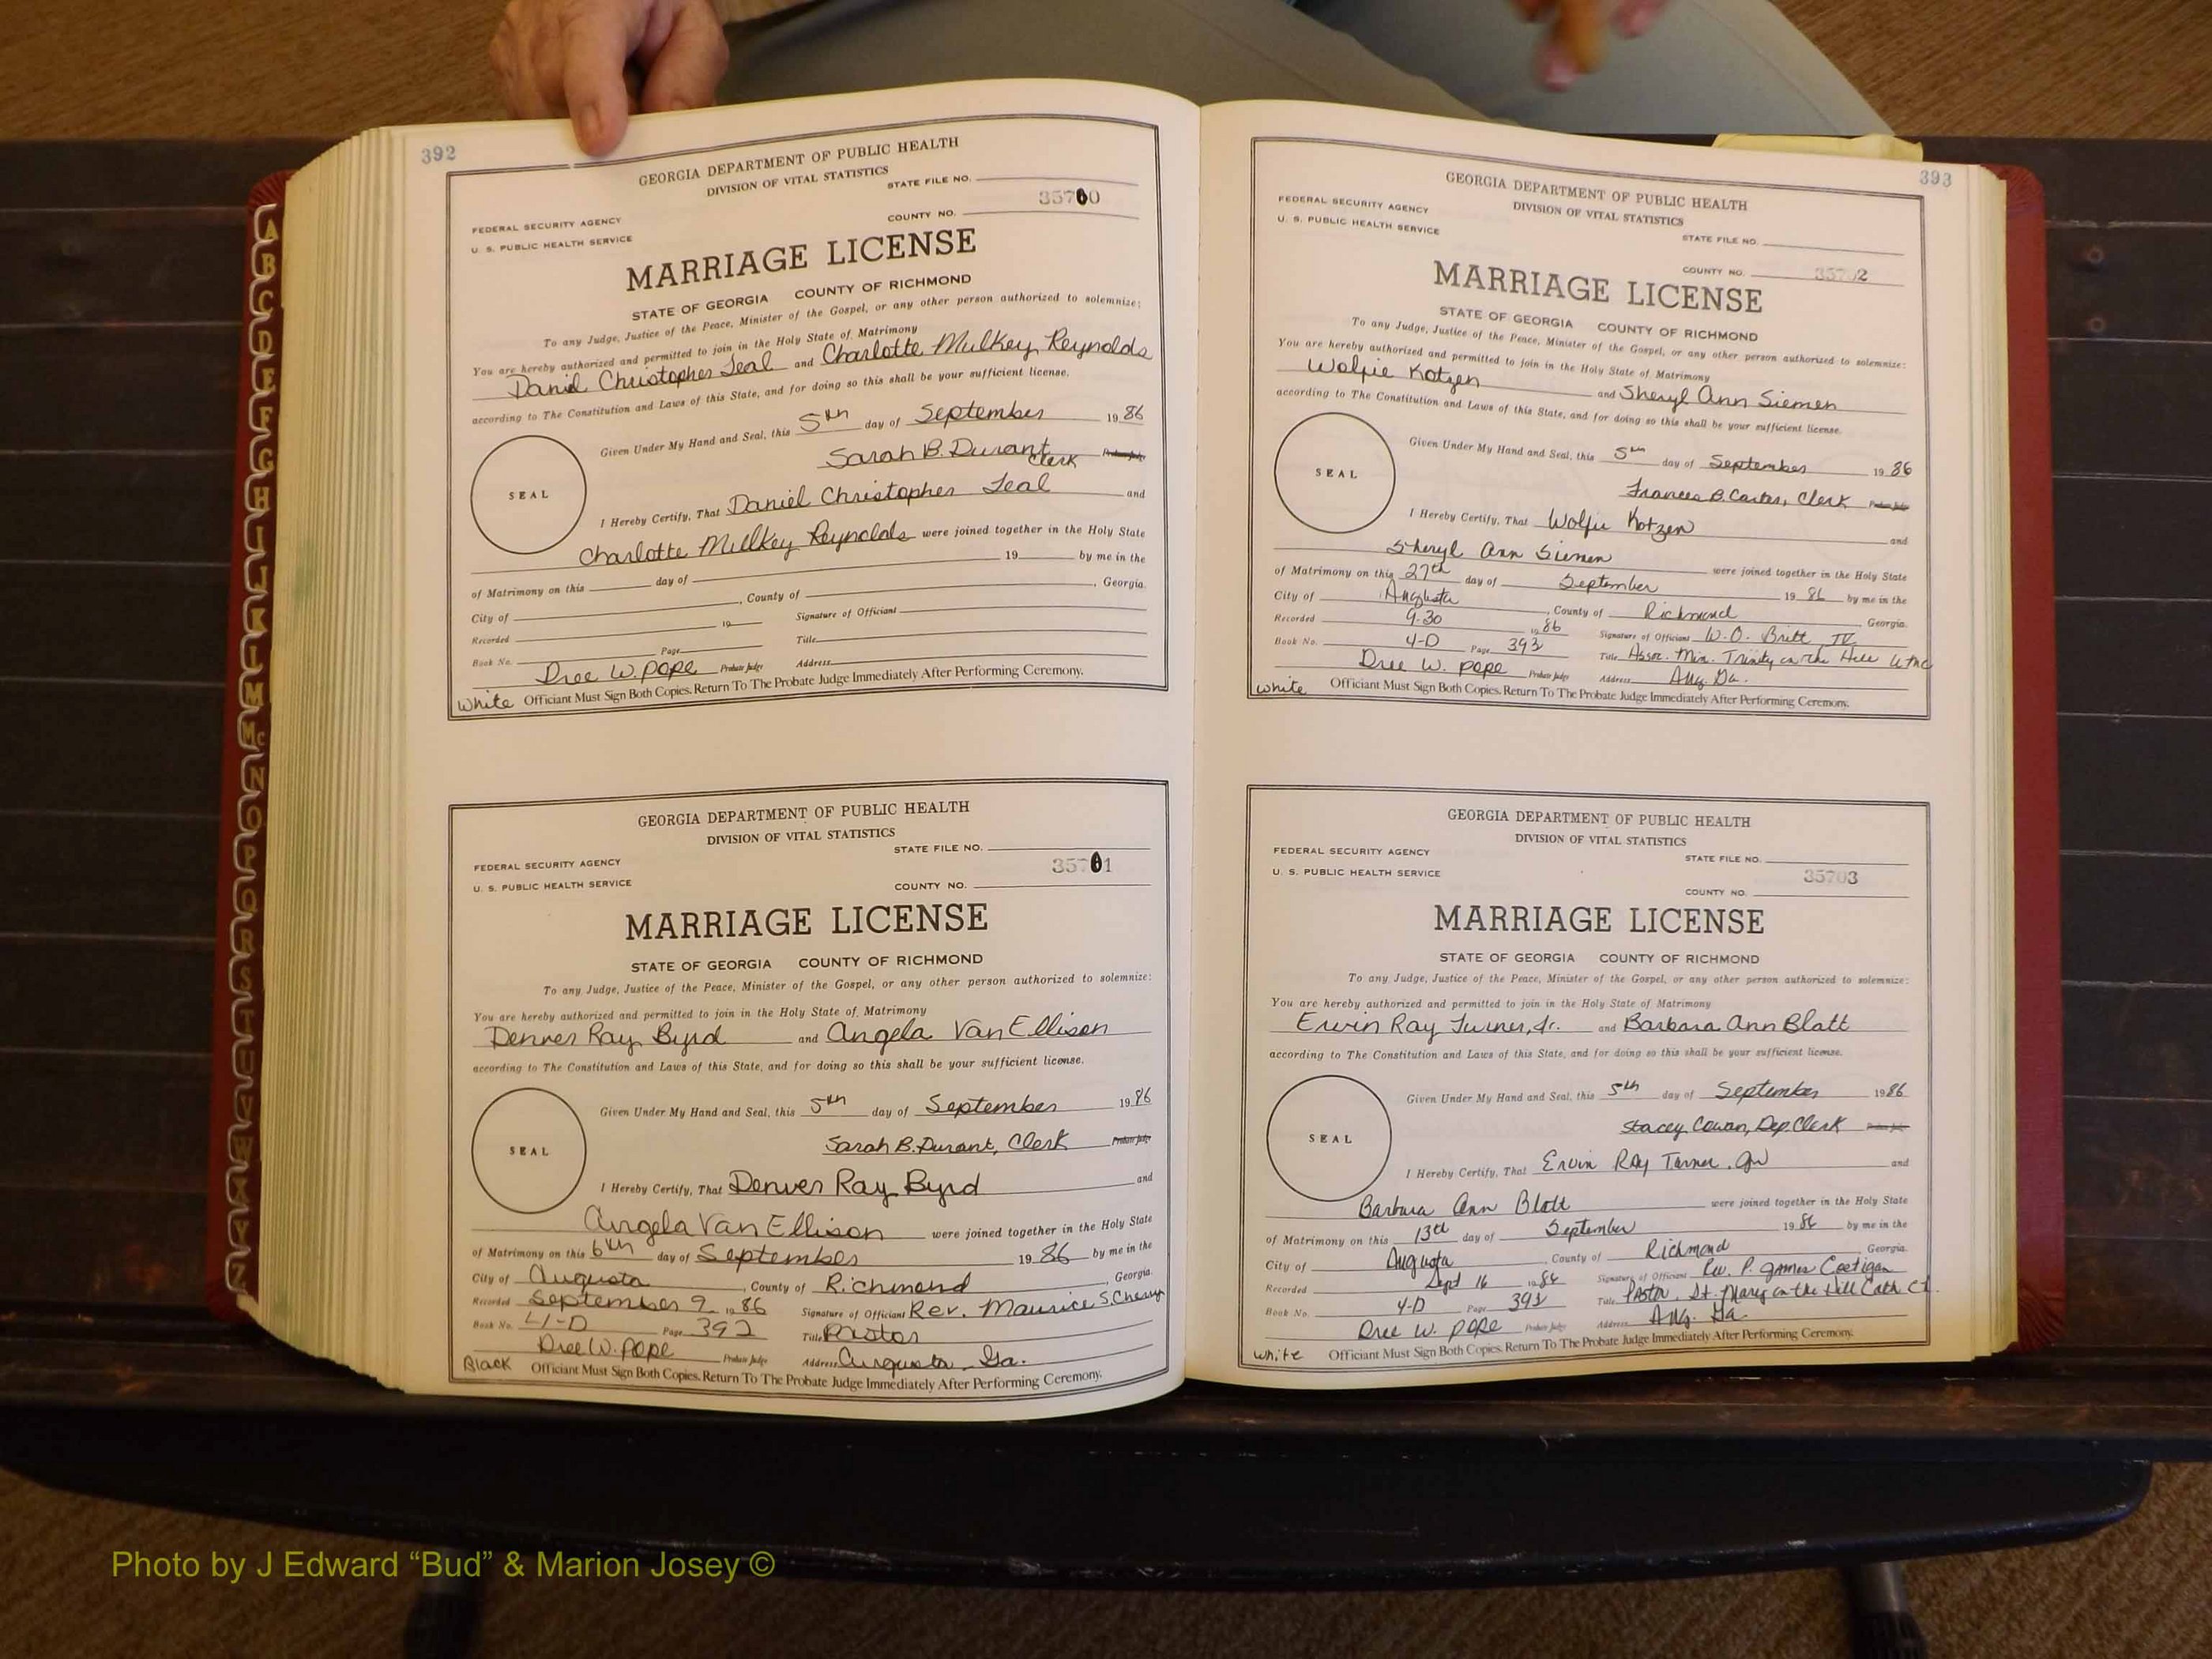 392
GEORGIA DEPARTMENT OF PUBLIC HEALTH
DIVISION OF VITAL STATISTICS
STATE FILE NO.
35700
FEDERAL SECURITY AGENCY
COUNTY NO.
U. S. PUBLIC HEALTH SERVICE
MARRIAGE LICENSE
STATE OF GEORGIA COUNTY OF RICHMOND
To any Judge, Justice of the Peace, Minister of the Gospel, or any other person authorized to solemnize:
You are hereby authorized and permitted to join in the Holy State of Matrimony
Daniel Christopher Teal and Charlotte Mulkey Reynolds
according to The Constitution and Laws of this State, and for doing so this shall be your sufficient license.
Given Under My Hand and Seal, this 5th day of September 1986
Sarah B. Durant Clerk Probate Judge
SEAL
I Hereby Certify, That Daniel Christopher Teal and
Charlotte Mulkey Reynolds were joined together in the Holy State
of Matrimony on this day of 19 by me in the
City of , County of , Georgia.
Recorded 19 Signature of Officiant
Book No. Page Title
Dree W. Pope Probate Judge Address
White Officiant Must Sign Both Copies. Return To The Probate Judge Immediately After Performing Ceremony.
GEORGIA DEPARTMENT OF PUBLIC HEALTH
DIVISION OF VITAL STATISTICS
STATE FILE NO.
FEDERAL SECURITY AGENCY
35701
U. S. PUBLIC HEALTH SERVICE
COUNTY NO.
MARRIAGE LICENSE
STATE OF GEORGIA COUNTY OF RICHMOND
To any Judge, Justice of the Peace, Minister of the Gospel, or any other person authorized to solemnize:
You are hereby authorized and permitted to join in the Holy State of Matrimony
Denver Ray Byrd and Angela Van Ellison
according to The Constitution and Laws of this State, and for doing so this shall be your sufficient license.
Given Under My Hand and Seal, this 5th day of September 1986
Sarah B. Durant, Clerk Probate Judge
SEAL
I Hereby Certify, That Denver Ray Byrd and
Angela Van Ellison were joined together in the Holy State
of Matrimony on this 6th day of September 1986 by me in the
City of Augusta, County of Richmond, Georgia.
Recorded September 9 1986 Signature of Officiant Rev. Maurice S. Cherry
Book No. 4-D Page 392 Title Pastor
Dree W. Pope Probate Judge Address Augusta, Ga.
Black Officiant Must Sign Both Copies. Return To The Probate Judge Immediately After Performing Ceremony.
393
GEORGIA DEPARTMENT OF PUBLIC HEALTH
FEDERAL SECURITY AGENCY
DIVISION OF VITAL STATISTICS
U. S. PUBLIC HEALTH SERVICE
STATE FILE NO.
COUNTY NO. 35702
MARRIAGE LICENSE
STATE OF GEORGIA COUNTY OF RICHMOND
To any Judge, Justice of the Peace, Minister of the Gospel, or any other person authorized to solemnize:
You are hereby authorized and permitted to join in the Holy State of Matrimony
Wolfie Kotzen and Sheryl Ann Siemen
according to The Constitution and Laws of this State, and for doing so this shall be your sufficient license.
Given Under My Hand and Seal, this 5th day of September 1986
Frances B. Carter, Clerk Probate Judge
SEAL
I Hereby Certify, That Wolfie Kotzen and
Sheryl Ann Siemen were joined together in the Holy State
of Matrimony on this 27th day of September 1986 by me in the
City of Augusta, County of Richmond Georgia.
Recorded 9-30 1986 Signature of Officiant W. O. Britt IV
Book No. 4-D Page 393 Title Assoc. Min. Trinity on the Hill UMC
Dree W. Pope Probate Judge Address Aug. Ga.
White Officiant Must Sign Both Copies. Return To The Probate Judge Immediately After Performing Ceremony.
GEORGIA DEPARTMENT OF PUBLIC HEALTH
DIVISION OF VITAL STATISTICS
FEDERAL SECURITY AGENCY
STATE FILE NO.
U. S. PUBLIC HEALTH SERVICE
35703
COUNTY NO.
MARRIAGE LICENSE
STATE OF GEORGIA COUNTY OF RICHMOND
To any Judge, Justice of the Peace, Minister of the Gospel, or any other person authorized to solemnize:
You are hereby authorized and permitted to join in the Holy State of Matrimony
Ervin Ray Turner, Jr. and Barbara Ann Blatt
according to The Constitution and Laws of this State, and for doing so this shall be your sufficient license.
Given Under My Hand and Seal, this 5th day of September 1986
Stacey Cowan, Dep. Clerk Probate Judge
SEAL
I Hereby Certify, That Ervin Ray Turner, Jr and
Barbara Ann Blatt were joined together in the Holy State
of Matrimony on this 13th day of September 1986 by me in the
City of Augusta, County of Richmond Georgia.
Recorded Sept 16 1986 Signature of Officiant Rev. P. James Costigan
Book No. 4-D Page 393 Title Pastor, St. Mary on the Hill Cath Ch.
Dree W. Pope Probate Judge Address Aug. Ga.
White Officiant Must Sign Both Copies. Return To The Probate Judge Immediately After Performing Ceremony.
A
B
C
D
E
F
G
H
I
J
K
L
M
Mc
N
O
P
Q
R
S
T
U
V
W
X
Y
Z
Photo by J Edward “Bud” & Marion Josey ©